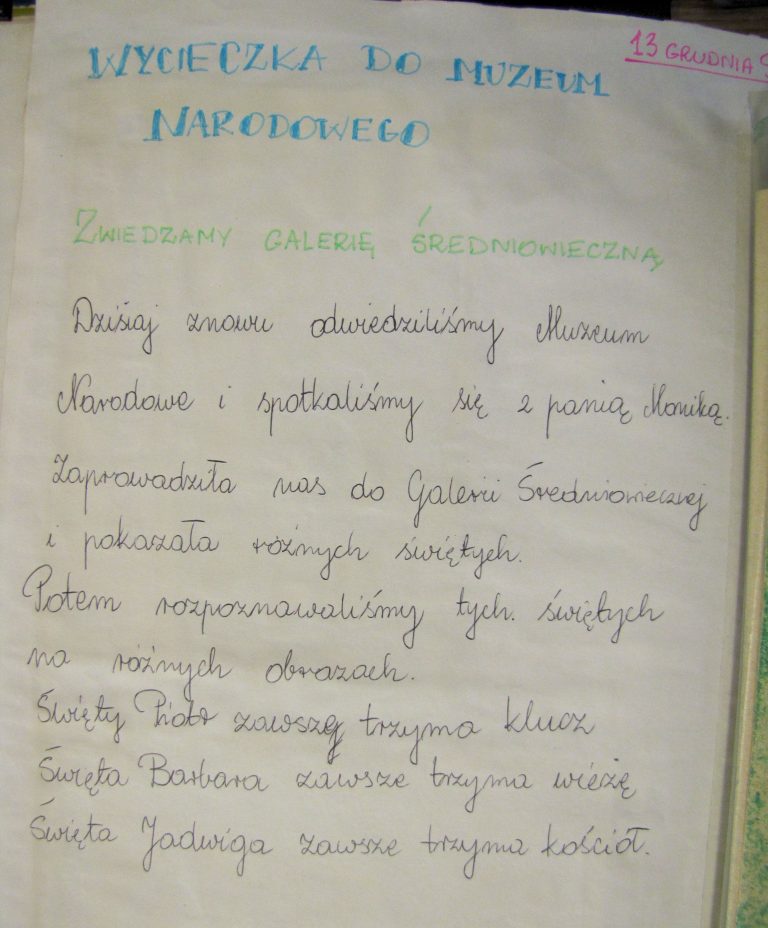 13 GRUDNIA
WYCIECZKA DO MUZEUM
NARODOWEGO
ZWIEDZAMY GALERIĘ ŚREDNIOWIECZNĄ
Dzisiaj znowu odwiedziliśmy Muzeum
Narodowe i spotkaliśmy się z panią Moniką.
Zaprowadziła nas do Galerii Średniowiecznej
i pokazała różnych świętych.
Potem rozpoznawaliśmy tych świętych
na różnych obrazach.
Święty Piotr zawsze trzyma klucz
Święta Barbara zawsze trzyma wieżę
Święta Jadwiga zawsze trzyma kościół.